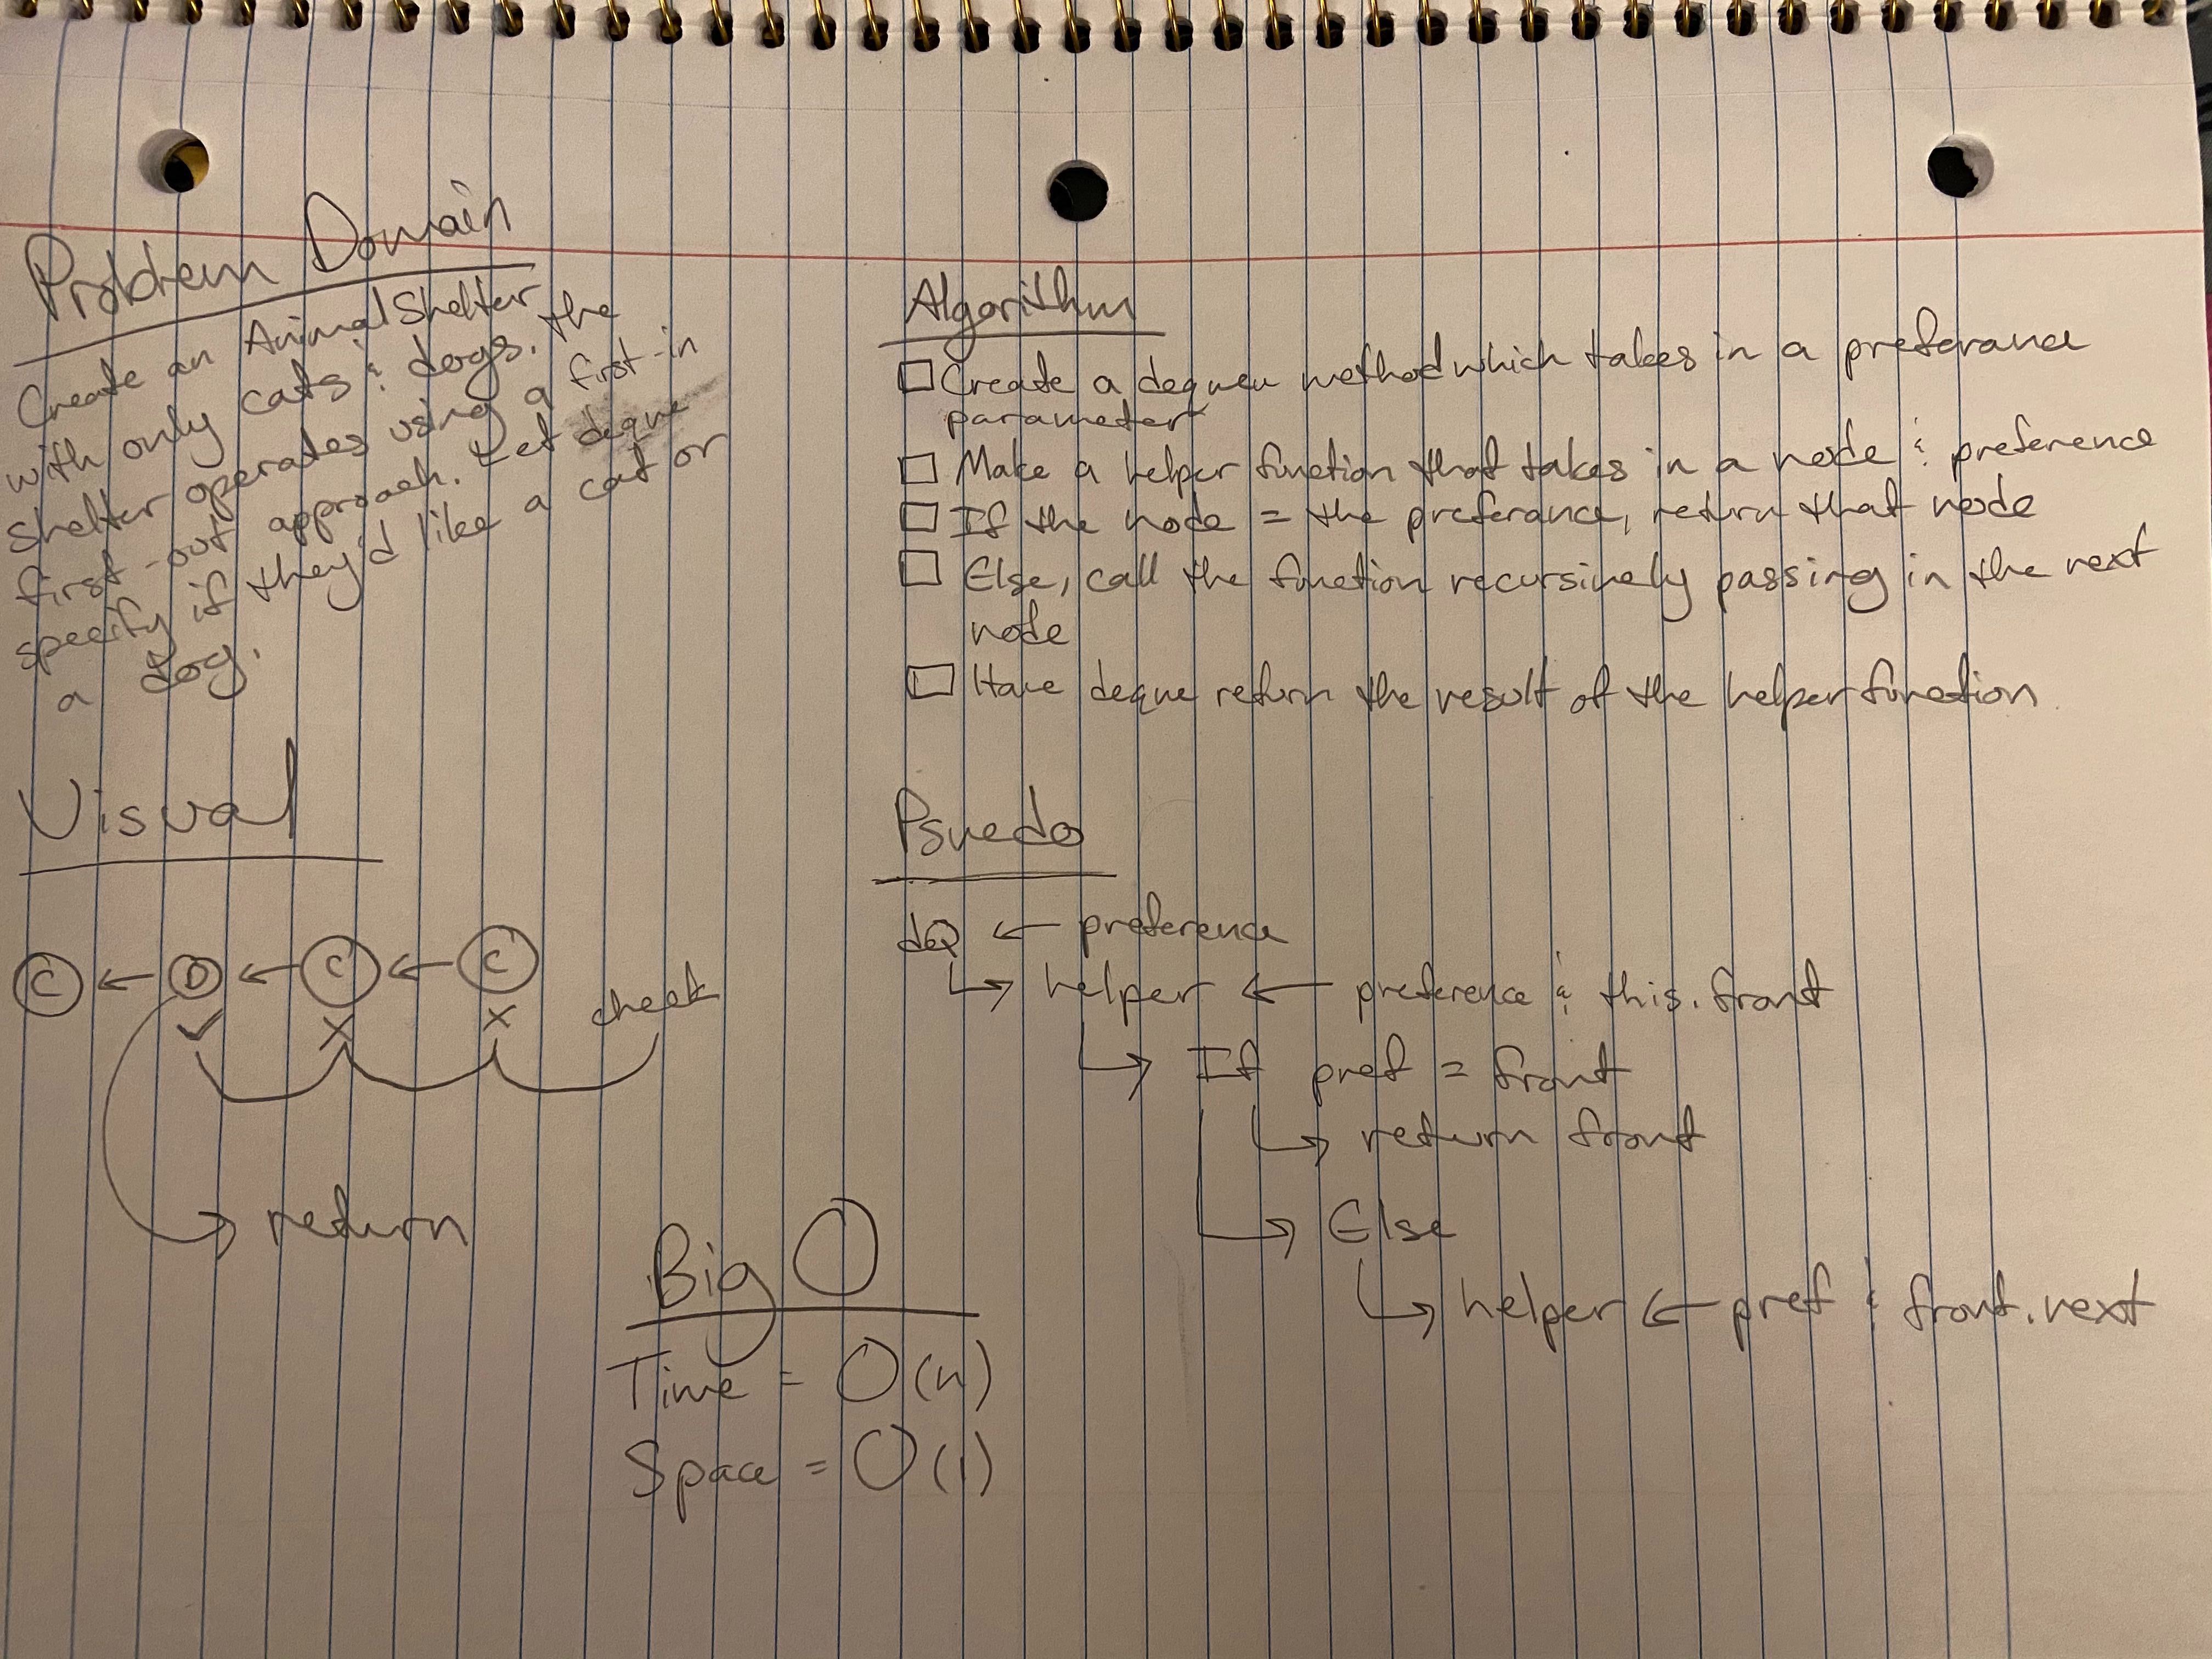 Problem Domain
Create an AnimalShelter
with only cats & dogs. the
shelter operates using a first-in
first-out approach. Let deque
specify if they'd like a cat or
a dog.
Visual
C ← D ← C ← C
✓ X X check
return
Algorithm
Create a dequeu method which takes in a preferance
parameter
Make a helper function that takes in a node & preference
If the node = the preferance, return that node
Else, call the function recursively passing in the next
node
Have deque return the result of the helper function
Psuedo
deQ ← preference
↳ helper ← preference & this.front
↳ If pref = front
↳ return front
↳ Else
↳ helper ← pref & front.next
Big O
Time = O(n)
Space = O(1)